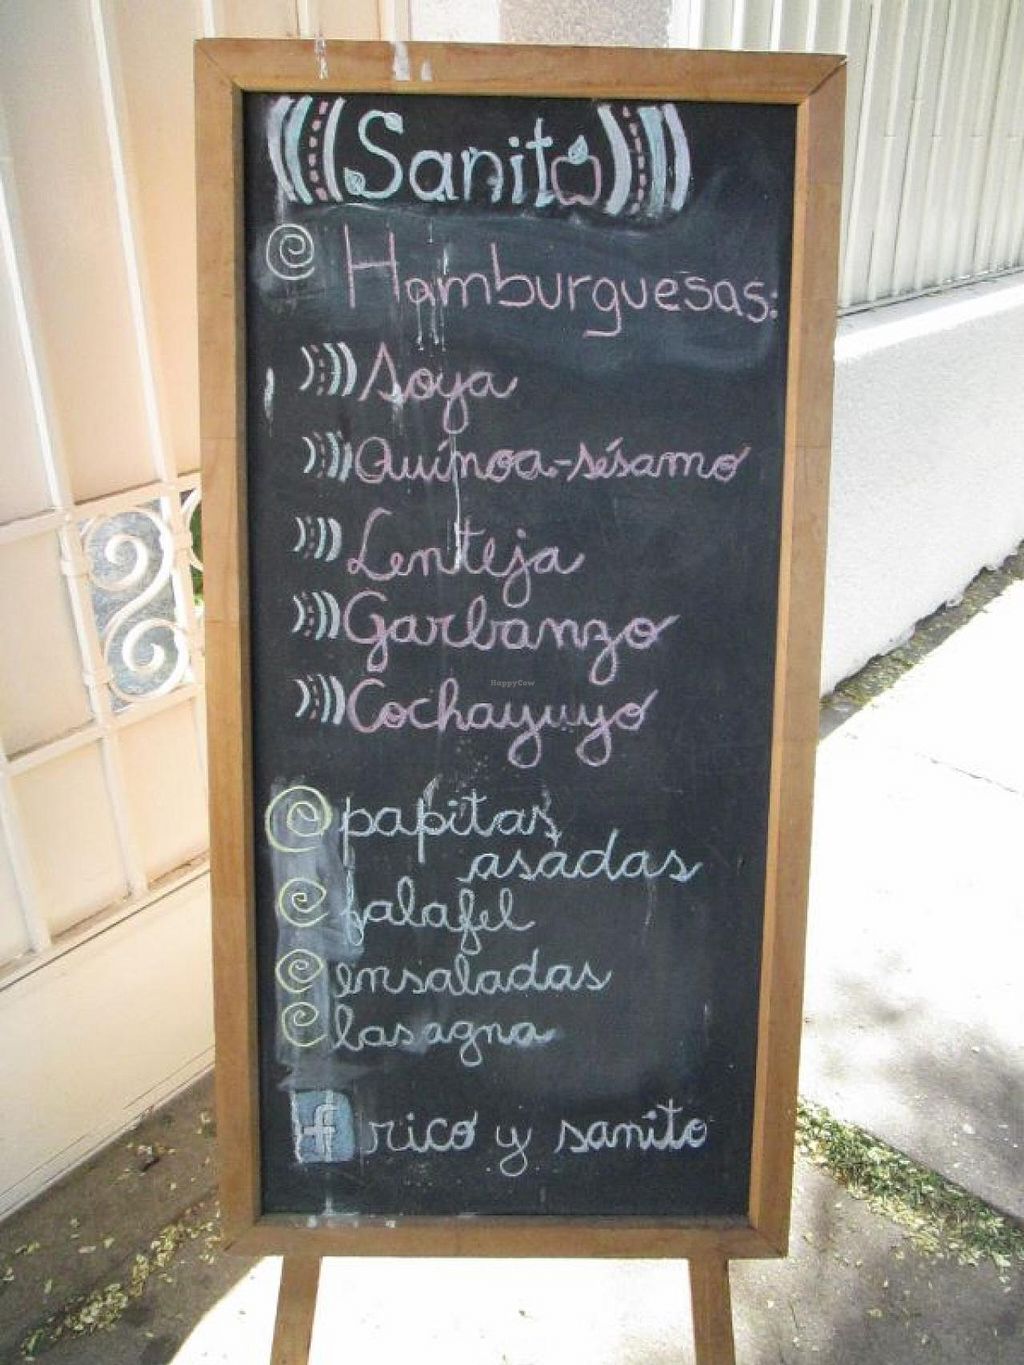 Sanito
Hamburguesas:
Soya
Quínoa-sésamo
Lenteja
Garbanzo
HappyCow
Cochayuyo
papitas
asadas
falafel
ensaladas
lasagna
f rico y sanito